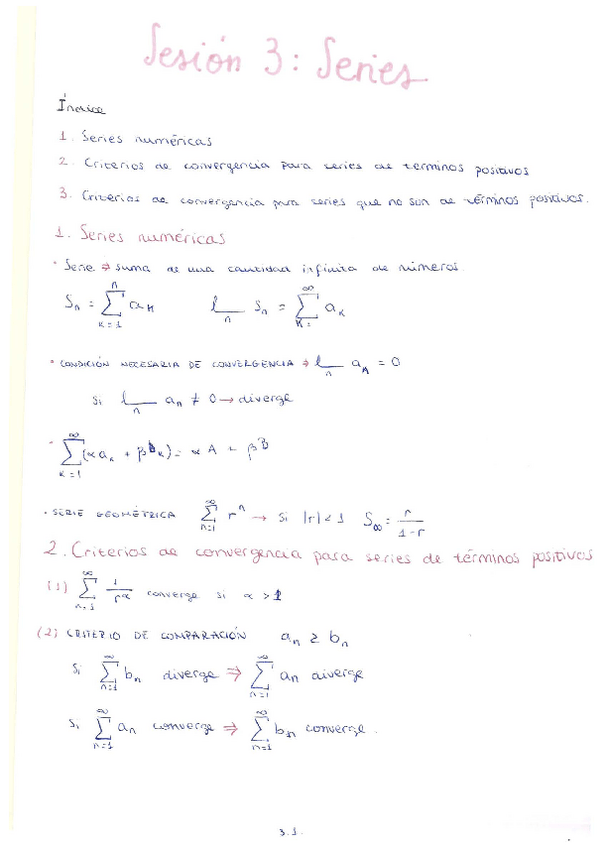 Sesión 3: Series
Índice
1. Series numéricas
2. Criterios de convergencia para series de terminos positivos
3. Criterios de convergencia para series que no son de términos positivos.
1. Series numéricas
· Serie ⇒ suma de una cantidad infinita de números.
S_n = ∑_{k=1}^{n} a_k    l___n S_n = ∑_{k=}^{∞} a_k
· CONDICIÓN NECESARIA DE CONVERGENCIA → l___n a_n = 0
Si l___n a_n ≠ 0 → diverge
· ∑_{k=1}^{∞} (α a_k + β b_k) = α A + β B
· SERIE GEOMÉTRICA ∑_{n=1}^{∞} r^n → Si |r| < 1  S_∞ = r/(1-r)
2. Criterios de convergencia para series de términos positivos
(1) ∑_{n=1}^{∞} 1/r^α converge si α > 1
(2) CRITERIO DE COMPARACIÓN  a_n ≥ b_n
Si ∑_{n=1}^{∞} b_n diverge ⇒ ∑_{n=1}^{∞} a_n diverge
Si ∑_{n=1}^{∞} a_n converge ⇒ ∑_{n=1}^{∞} b_n converge.
3.1.